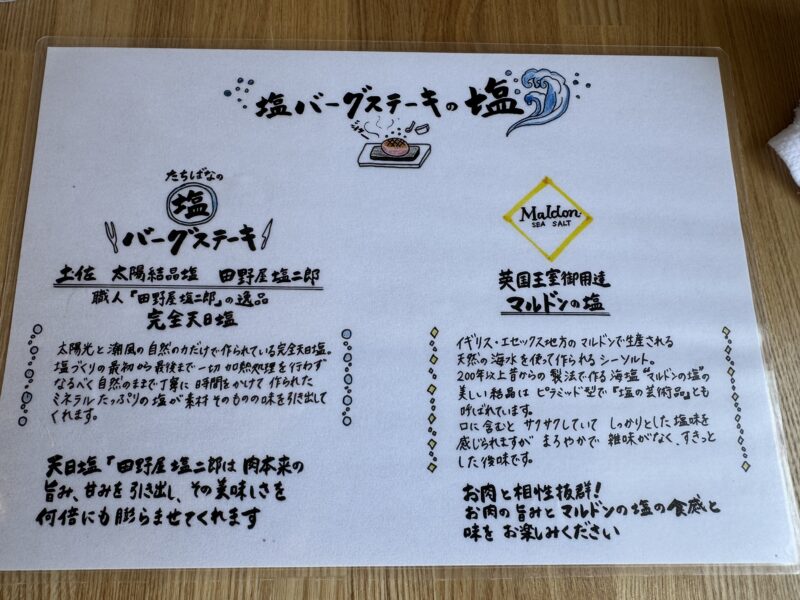 塩バーグステーキの塩
たちばなの
塩
バーグステーキ
土佐 太陽結晶塩 田野屋塩二郎
職人「田野屋塩二郎」の逸品
完全天日塩
太陽光と潮風の自然の力だけで作られている完全天日塩。
塩づくりの最初から最後まで一切加熱処理を行わず
なるべく自然のままで丁寧に時間をかけて作られた
ミネラルたっぷりの塩が素材そのものの味を引き出して
くれます。
天日塩「田野屋塩二郎は肉本来の
旨み、甘みを引き出し、その美味しさを
何倍にも膨らませてくれます
Maldon
SEA SALT
英国王室御用達
マルドンの塩
イギリス・エセックス地方のマルドンで生産される
天然の海水を使って作られるシーソルト。
200年以上昔からの製法で作る海塩“マルドンの塩”の
美しい結晶はピラミッド型で『塩の芸術品』とも
呼ばれています。
口に含むとサクサクしていてしっかりとした塩味を
感じられますがまろやかで雑味がなく、すきっと
した後味です。
お肉と相性抜群!
お肉の旨みとマルドンの塩の食感と
味をお楽しみください